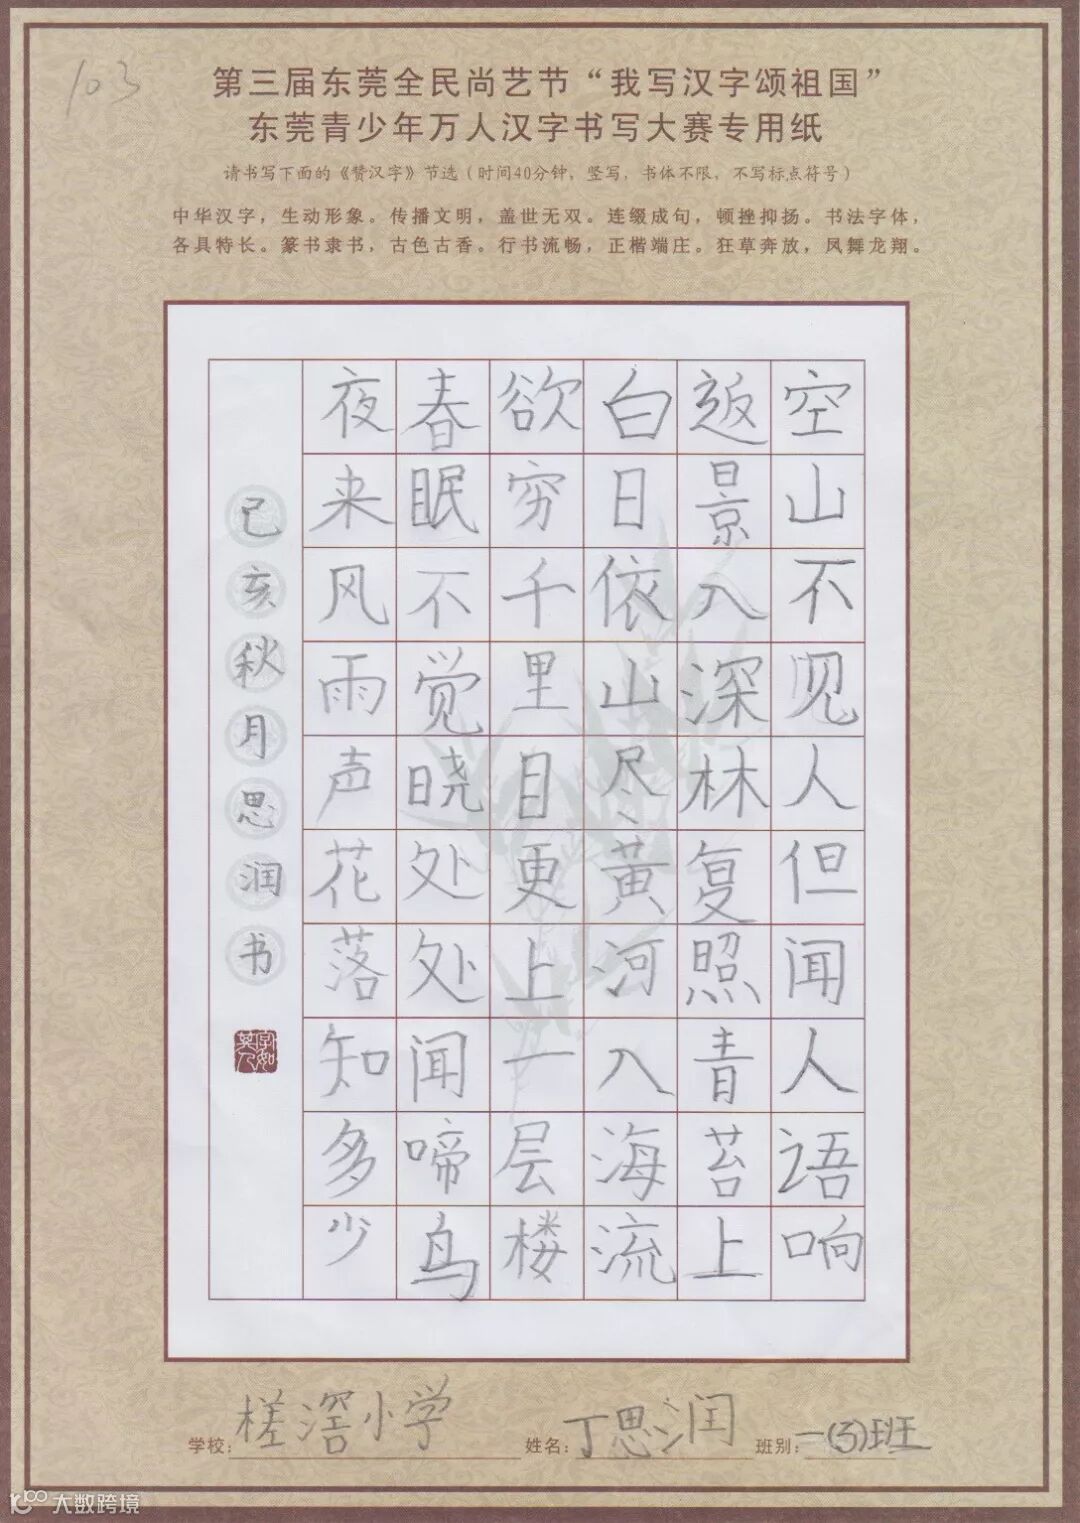 103
第三届东莞全民尚艺节“我写汉字颂祖国”
东莞青少年万人汉字书写大赛专用纸
请书写下面的《赞汉字》节选（时间40分钟，竖写，书体不限，不写标点符号）
中华汉字，生动形象。传播文明，盖世无双。连缀成句，顿挫抑扬。书法字体，
各具特长。篆书隶书，古色古香。行书流畅，正楷端庄。狂草奔放，凤舞龙翔。
空山不见人但闻人语响
返景入深林复照青苔上
白日依山尽黄河入海流
欲穷千里目更上一层楼
春眠不觉晓处处闻啼鸟
夜来风雨声花落知多少
己亥秋月思润书
字如其人
学校：槎滘小学 姓名：丁思润 班别：一(3)班
大数跨境